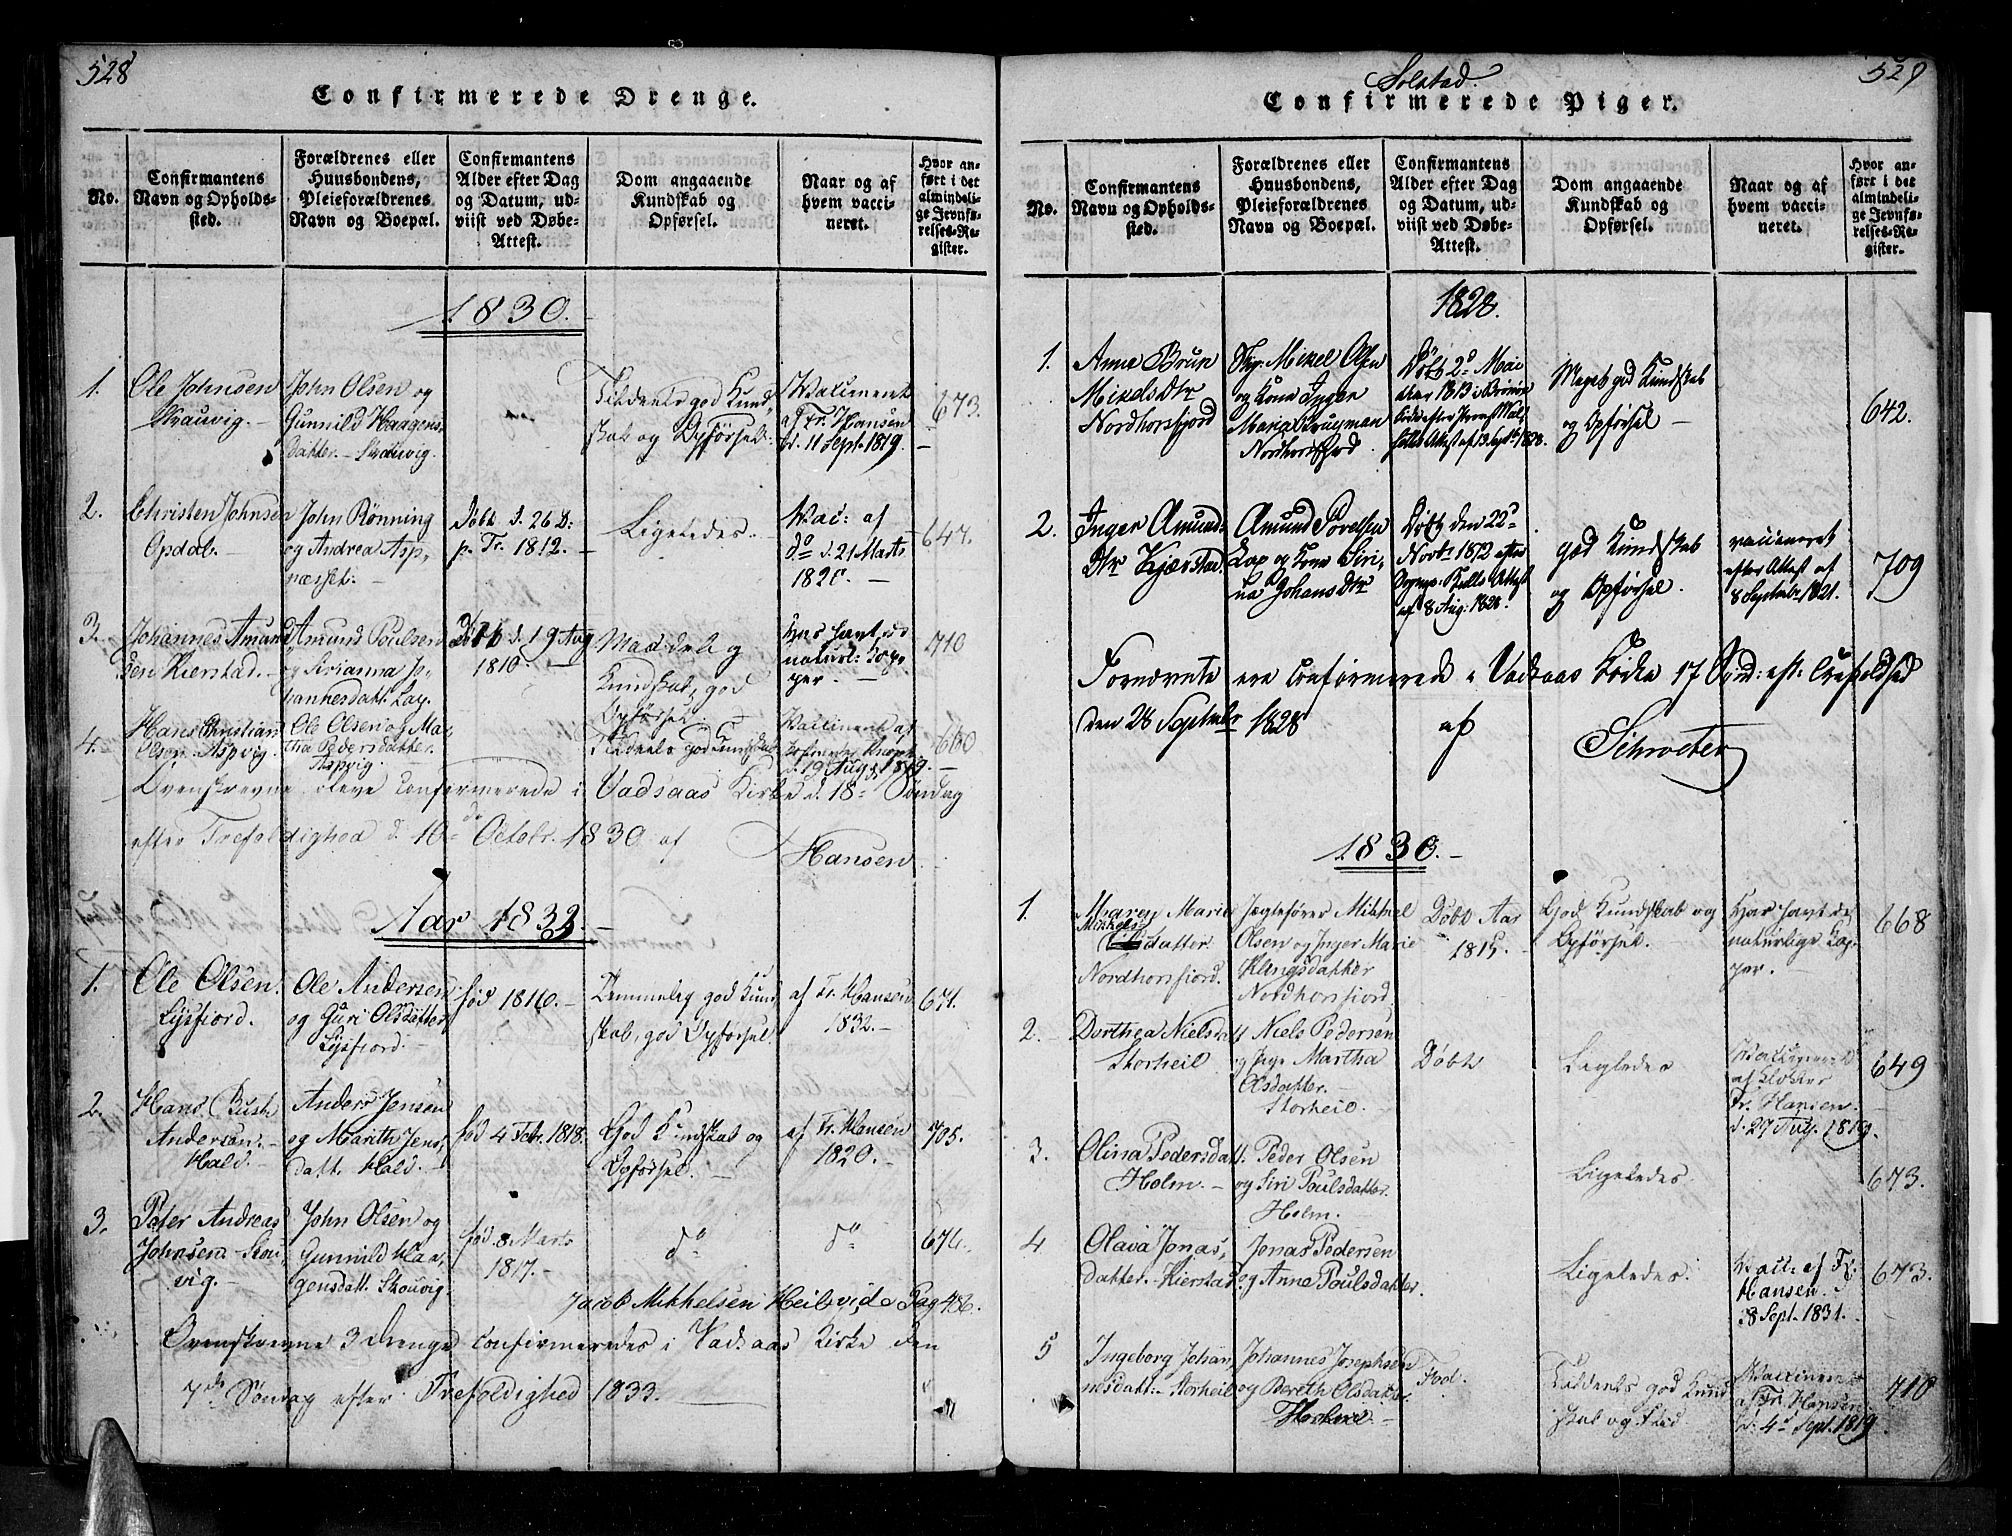 528
Confirmerede Drenge.
No.
Confirmantens
Navn og Opholds-
sted.
Forældrenes eller
Huusbondens,
Pleieforældrenes
Navn og Boepæl.
Confirmantens
Alder efter Dag
og Datum, ud-
viist ved Døbe-
Attest.
Dom angaaende
Kundskab og
Opførsel.
Naar og af
hvem vacci-
neret.
Hvor an-
ført i det
almindeli-
ge Jevnfø-
relses-Re-
gister.
1830.
1.
Ole Johnsen
Skauvig.
John Olsen og
Gunnild Haagens
datter. Skauvig.
Tildeels god Kund-
skab og Opførsel.
Vaccineret
af Fr. Hansen
d. 11 Sept. 1819.
673.
2.
Christen Johnsen
Opdal.
John Rönning
og Andrea Asp-
næsset.
Döbt d. 26 D:
p. Tr. 1812.
Ligeledes.
Vac: af
do d. 21 Marts
1820.
647.
3.
Johannes Amund
sen Kierstad.
Amund Poulsen
og Sirianna Jo-
hannesdatt. Lap.
Döbt d. 19 Aug
1810.
Maadelig
Kundskab, god
Opførsel.
Har havt de
naturl: Kop-
per.
710
4.
Hans Christian
Olsen Aspvig.
Ole Olsen og Mar-
tha Pedersdatter.
Aspvig.
Tildeels god Kundskab
Vaccineret af
d. 19 Aug. 1819.
660
Ovenskrevne bleve confirmerede i Vadsaas Kirke d. 18de Søndag
efter Trefoldighed d. 10de Octobr. 1830 af
Hansen
Aar 1833.
1.
Ole Olsen.
Lysfiord.
Ole Andersen
og Guri Olsdatter
Lysfiord.
fød 1816.
Temmelig god Kund-
skab, god Opførsel
af Fr. Hansen
1832.
671.
2.
Hans Busk
Andersen.
Hald.
Anders Jensen
og Marith Jens-
datt. Hald.
fød 4 Febr. 1818.
God Kundskab og
Opførsel.
af Fr. Hansen
1820.
705.
3.
Peter Andreas
Johnsen Skou-
vig.
John Olsen og
Gunnild Haa-
gensdatt. Skouvig.
fød 8 Marts
1817.
do
do
676.
Jacob Mikkelsen Heilvide Pag 486.
Ovenskrevne 3 Drenge confirmeredes i Vadsaas Kirke den
7de Søndag efter Trefoldighed 1833.
529
Solstad.
Confirmerede Piger.
No.
Confirmantens
Navn og Opholds-
sted.
Forældrenes eller
Huusbondens,
Pleieforældrenes
Navn og Boepæl.
Confirmantens
Alder efter Dag
og Datum, ud-
viist ved Døbe-
Attest.
Dom angaaende
Kundskab og
Opførsel.
Naar og af
hvem vacci-
neret.
Hvor an-
ført i det
almindeli-
ge Jevnfø-
relses-Re-
gister.
1828.
1.
Anne Brun
Mikelsdtr
Nordhorsfjord
Mikel Olsen
og Kone Inger
Maria Kruyman
Nordhorsfjord
Døbt 2d Mai
Aar 1813 i
1828.
Meget god Kundskab
og Opførsel
642.
2.
Inger Amund-
dtr Kjærstad
Amund Povelsen
Lap og Kone Siri-
na Johansdtr
Døbt den 22d
Novbr 1812 efter
af 8 Aug: 1828.
god Kundskab
og Opførsel.
vaccineret
efter Attest af
8 Septembr 1821.
709
Fornævnte ere Confirmerede i Vadsaas Kirke 17 Sønd: eft: Trefoldhed
den 28 Septembr 1828 af
Schroeter
1830.
1.
Maren Marie
Mikkels
datter.
Nordhorsfiord.
Jægtefører Mikkel
Olsen og Inger Marie
Klingsdatter
Nordhorsfiord.
Döbt Aar
1815.
God Kundskab og
Opførsel.
Har havt de
naturlige Kop-
per.
668
2.
Dorthea Nielsdatt.
Storheil
Niels Pedersen
og Martha
Olsdatter.
Storheil.
Döbt
Ligeledes
Vaccineret
af Klokker
Fr. Hansen.
d. 27 Aug. 1819.
649
3.
Olina Pedersdatt.
Holm.
Peder Olsen
og Siri Poulsdatter.
Holm.
Ligeledes
673.
4
Olava Jonas-
datter. Kierstad
Jonas Pedersen
og Anne Poulsdatter.
Ligeledes.
Vacc: af Fr.
Hansen. d.
8 Sept. 1831.
673.
5
Ingeborg Johan-
nesdatt: Storheil
Johannes Josephsen
og Bereth Olsdatter.
Fød.
Tildeels god Kund
skab og Flid
Vaccineret
af Fr. Hansen
d. 4de Sept. 1819.
710